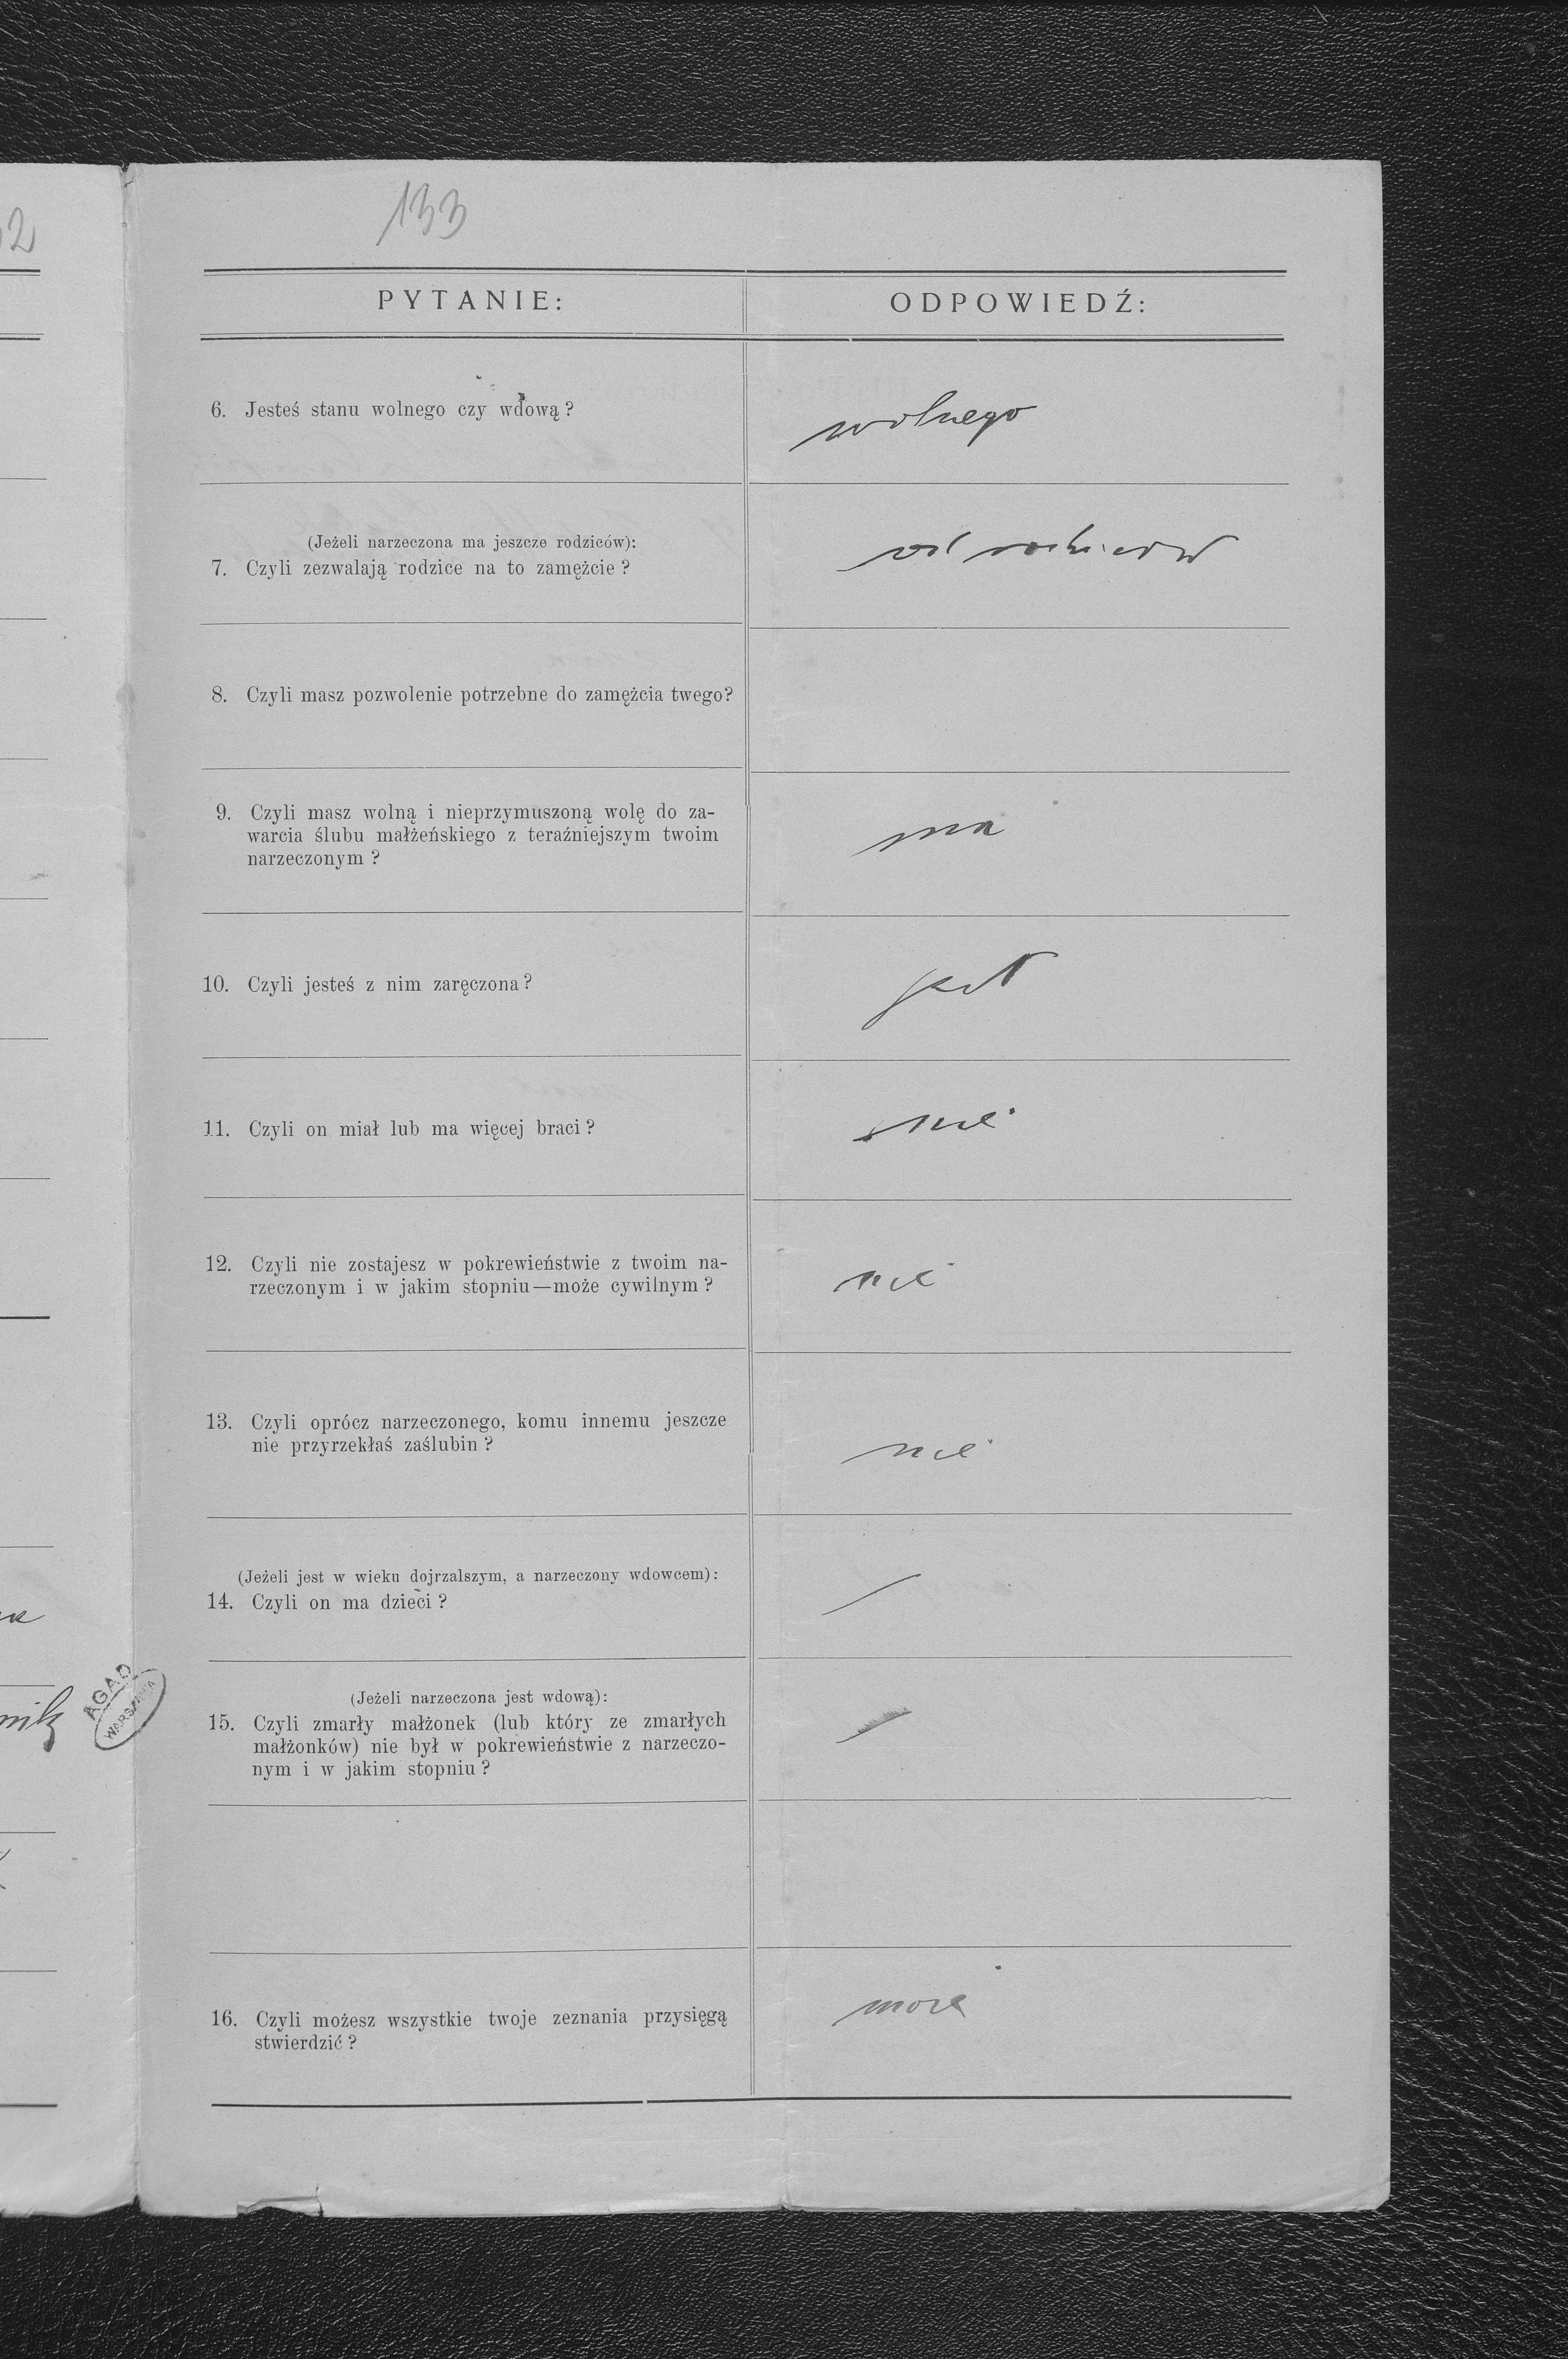 133
PYTANIE:
ODPOWIEDŹ:
6. Jesteś stanu wolnego czy wdową?
wolnego
(Jeżeli narzeczona ma jeszcze rodziców):
7. Czyli zezwalają rodzice na to zamężcie?
od rodziców
8. Czyli masz pozwolenie potrzebne do zamężcia twego?
9. Czyli masz wolną i nieprzymuszoną wolę do za-
warcia ślubu małżeńskiego z teraźniejszym twoim
narzeczonym?
ma
10. Czyli jesteś z nim zaręczona?
jest
11. Czyli on miał lub ma więcej braci?
nie
12. Czyli nie zostajesz w pokrewieństwie z twoim na-
rzeczonym i w jakim stopniu—może cywilnym?
nie
13. Czyli oprócz narzeczonego, komu innemu jeszcze
nie przyrzekłaś zaślubin?
nie
(Jeżeli jest w wieku dojrzalszym, a narzeczony wdowcem):
14. Czyli on ma dzieci?
(Jeżeli narzeczona jest wdową):
15. Czyli zmarły małżonek (lub który ze zmarłych
małżonków) nie był w pokrewieństwie z narzeczo-
nym i w jakim stopniu?
AGAD
WARSZAWA
16. Czyli możesz wszystkie twoje zeznania przysięgą
stwierdzić?
może